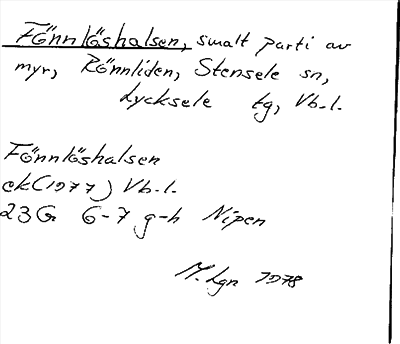 Fönnlöshalsen, smalt parti av
myr, Rönnliden, Stensele sn,
Lycksele tg, Vb.l.
Fönnlöshalsen
ek (1977) Vb.l.
23G 6-7 g-h Nipen
M. Lgn 1978